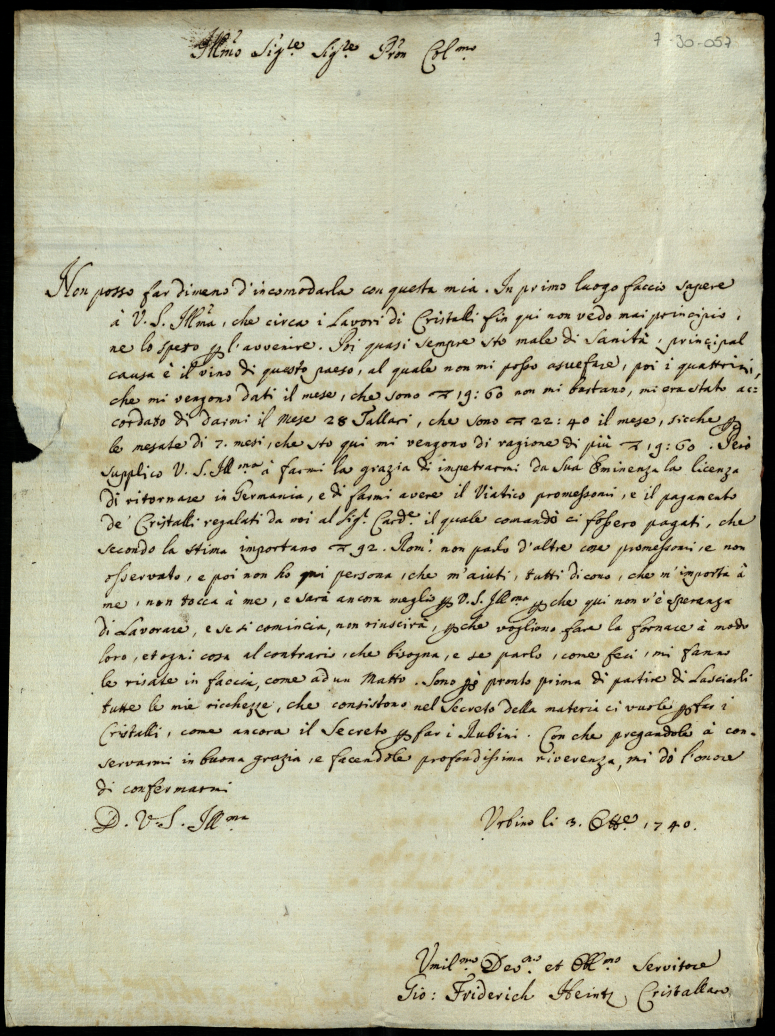 7-30-057
Ill.mo Sig.re Sig.re P̄ron Col.mo
Non posso far dimeno d'incomodarla con questa mia. In primo luogo faccio sapere
à V. S. Ill.ma, che circa i Lavori di Cristalli fin qui non vedo mai principio,
ne lo spero ꝑ l'avvenire. Poi quasi sempre sto male di Sanità, principal
causa è il vino di questo paeso, al quale non mi posso asuefare, poi i quattrini,
che mi vengono dati il mese, che sono 19: 60 non mi bastano, mi era stato ac=
cordato di darmi il Mese 28 Tallari, che sono 22: 40 il mese, sicche ꝑ
le mesate di 7. mesi, che sto qui mi vengono di ragione di più 19: 60. Però
supplico V. S. Ill.ma à farmi la grazia di impetrarmi da Sua Eminenza la licenza
di ritornare in Germania, e di farmi avere il Viatico promessomi, e il pagamento
de' Cristalli regalati da noi al Sig.r Card.e il quale comandò ci fossero pagati, che
secondo la stima importano 92. Rom.i non parlo d'altre cose promessomi, e non
osservato, e poi non ho qui persona, che m'aiuti, tutti dicono, che m'importa à
me, non tocca à me, e sarà ancora meglio ꝑ V. S. Ill.ma ꝑche qui non v'è speranza
di Lavorare, e se si comincia, non riuscirà, ꝑche vogliono fara la fornace à modo
loro, et ogni cosa al contrario, che bisogna, e se parlo, come feci, mi fanno
le risate in faccia, come ad un Matto. Sono ꝑò pronto prima di partire di Lasciarli
tutte le mie richezze, che consistono nel Secreto della materia ci vuole ꝑ far i
Cristalli, come ancora il Secreto ꝑ far i Rubini. Con che pregandole à con=
servarmi in buona grazia, e facendole profondissima riverenza, mi dò l'onore
di confermarmi
D. V. S. Ill.ma
Urbino li 3. Ott.e 1740.
Umil.mo Dev.mo et Obl.mo Servitore
Gio: Friderich Heintz Cristallaro